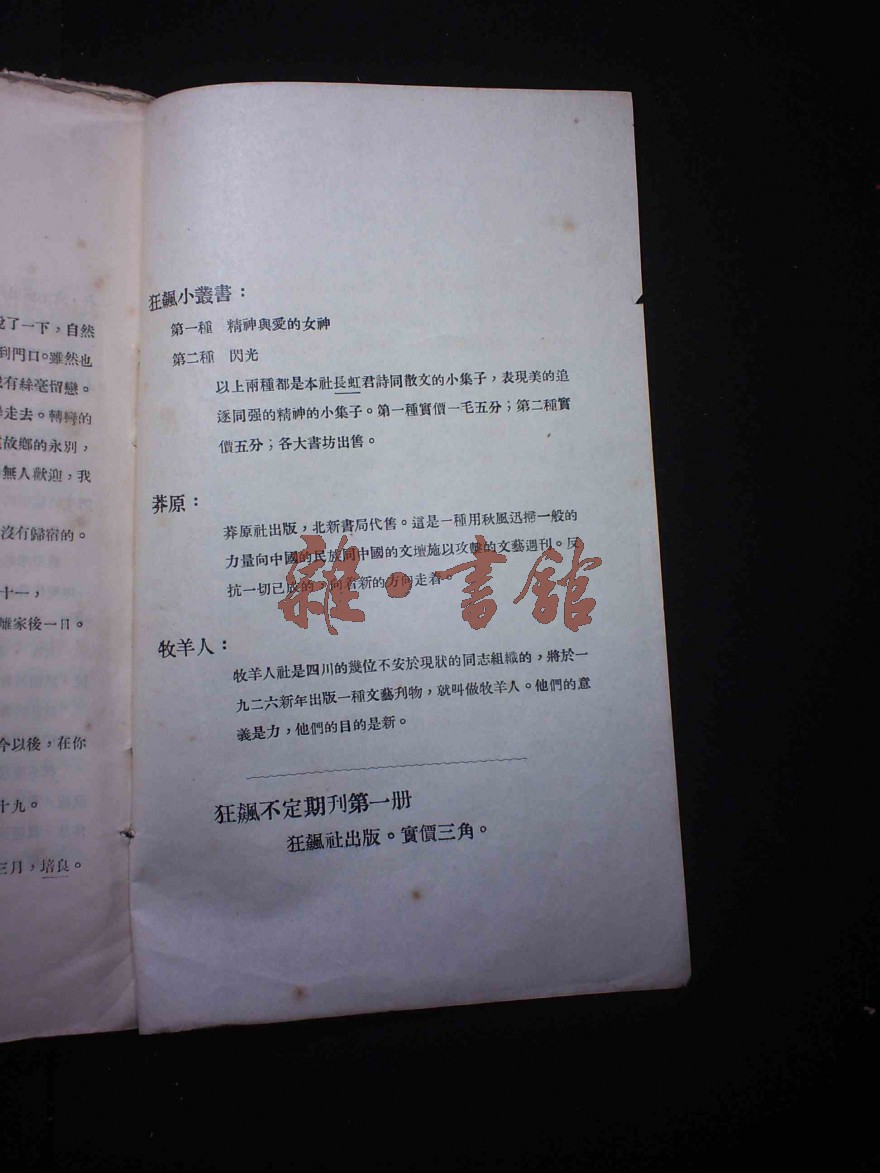 說了一下，自然
到門口。雖然也
有絲毫留戀。
走去。轉彎的
故鄉的永別，
無人歡迎，我
沒有歸宿的。
十一，
離家後一日。
今以後，在你
十九。
三月，培良。
狂飆小叢書：
第一種　精神與愛的女神
第二種　閃光
以上兩種都是本社長虹君詩同散文的小集子，表現美的追
逐同强的精神的小集子。第一種實價一毛五分；第二種實
價五分；各大書坊出售。
莽原：
莽原社出版，北新書局代售。這是一種用秋風迅掃一般的
力量向中國的民族同中國的文壇施以攻擊的文藝週刊。反
抗一切已成的，向着新的方向走着。
牧羊人：
牧羊人社是四川的幾位不安於現狀的同志組織的，將於一
九二六新年出版一種文藝刋物，就叫做牧羊人。他們的意
義是力，他們的目的是新。
狂飆不定期刋第一册
狂飆社出版。實價三角。
雜·書館